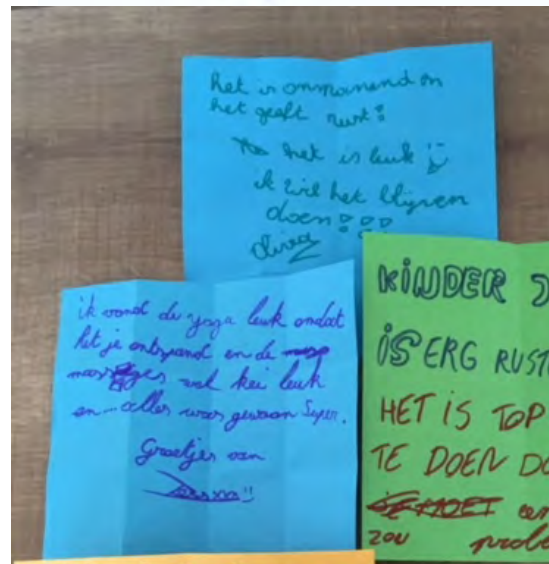 het is ommanend en
het geeft rust!
het is leuk
ik wil het blijven
doen!!!
ik vond de yoga leuk omdat
het je ontspand en de
massages wel kei leuk
en...alles was gewoon super.
Groetjes van
KINDER
IS ERG RUST
HET IS TOP
TE DOEN DO
ZOU probe